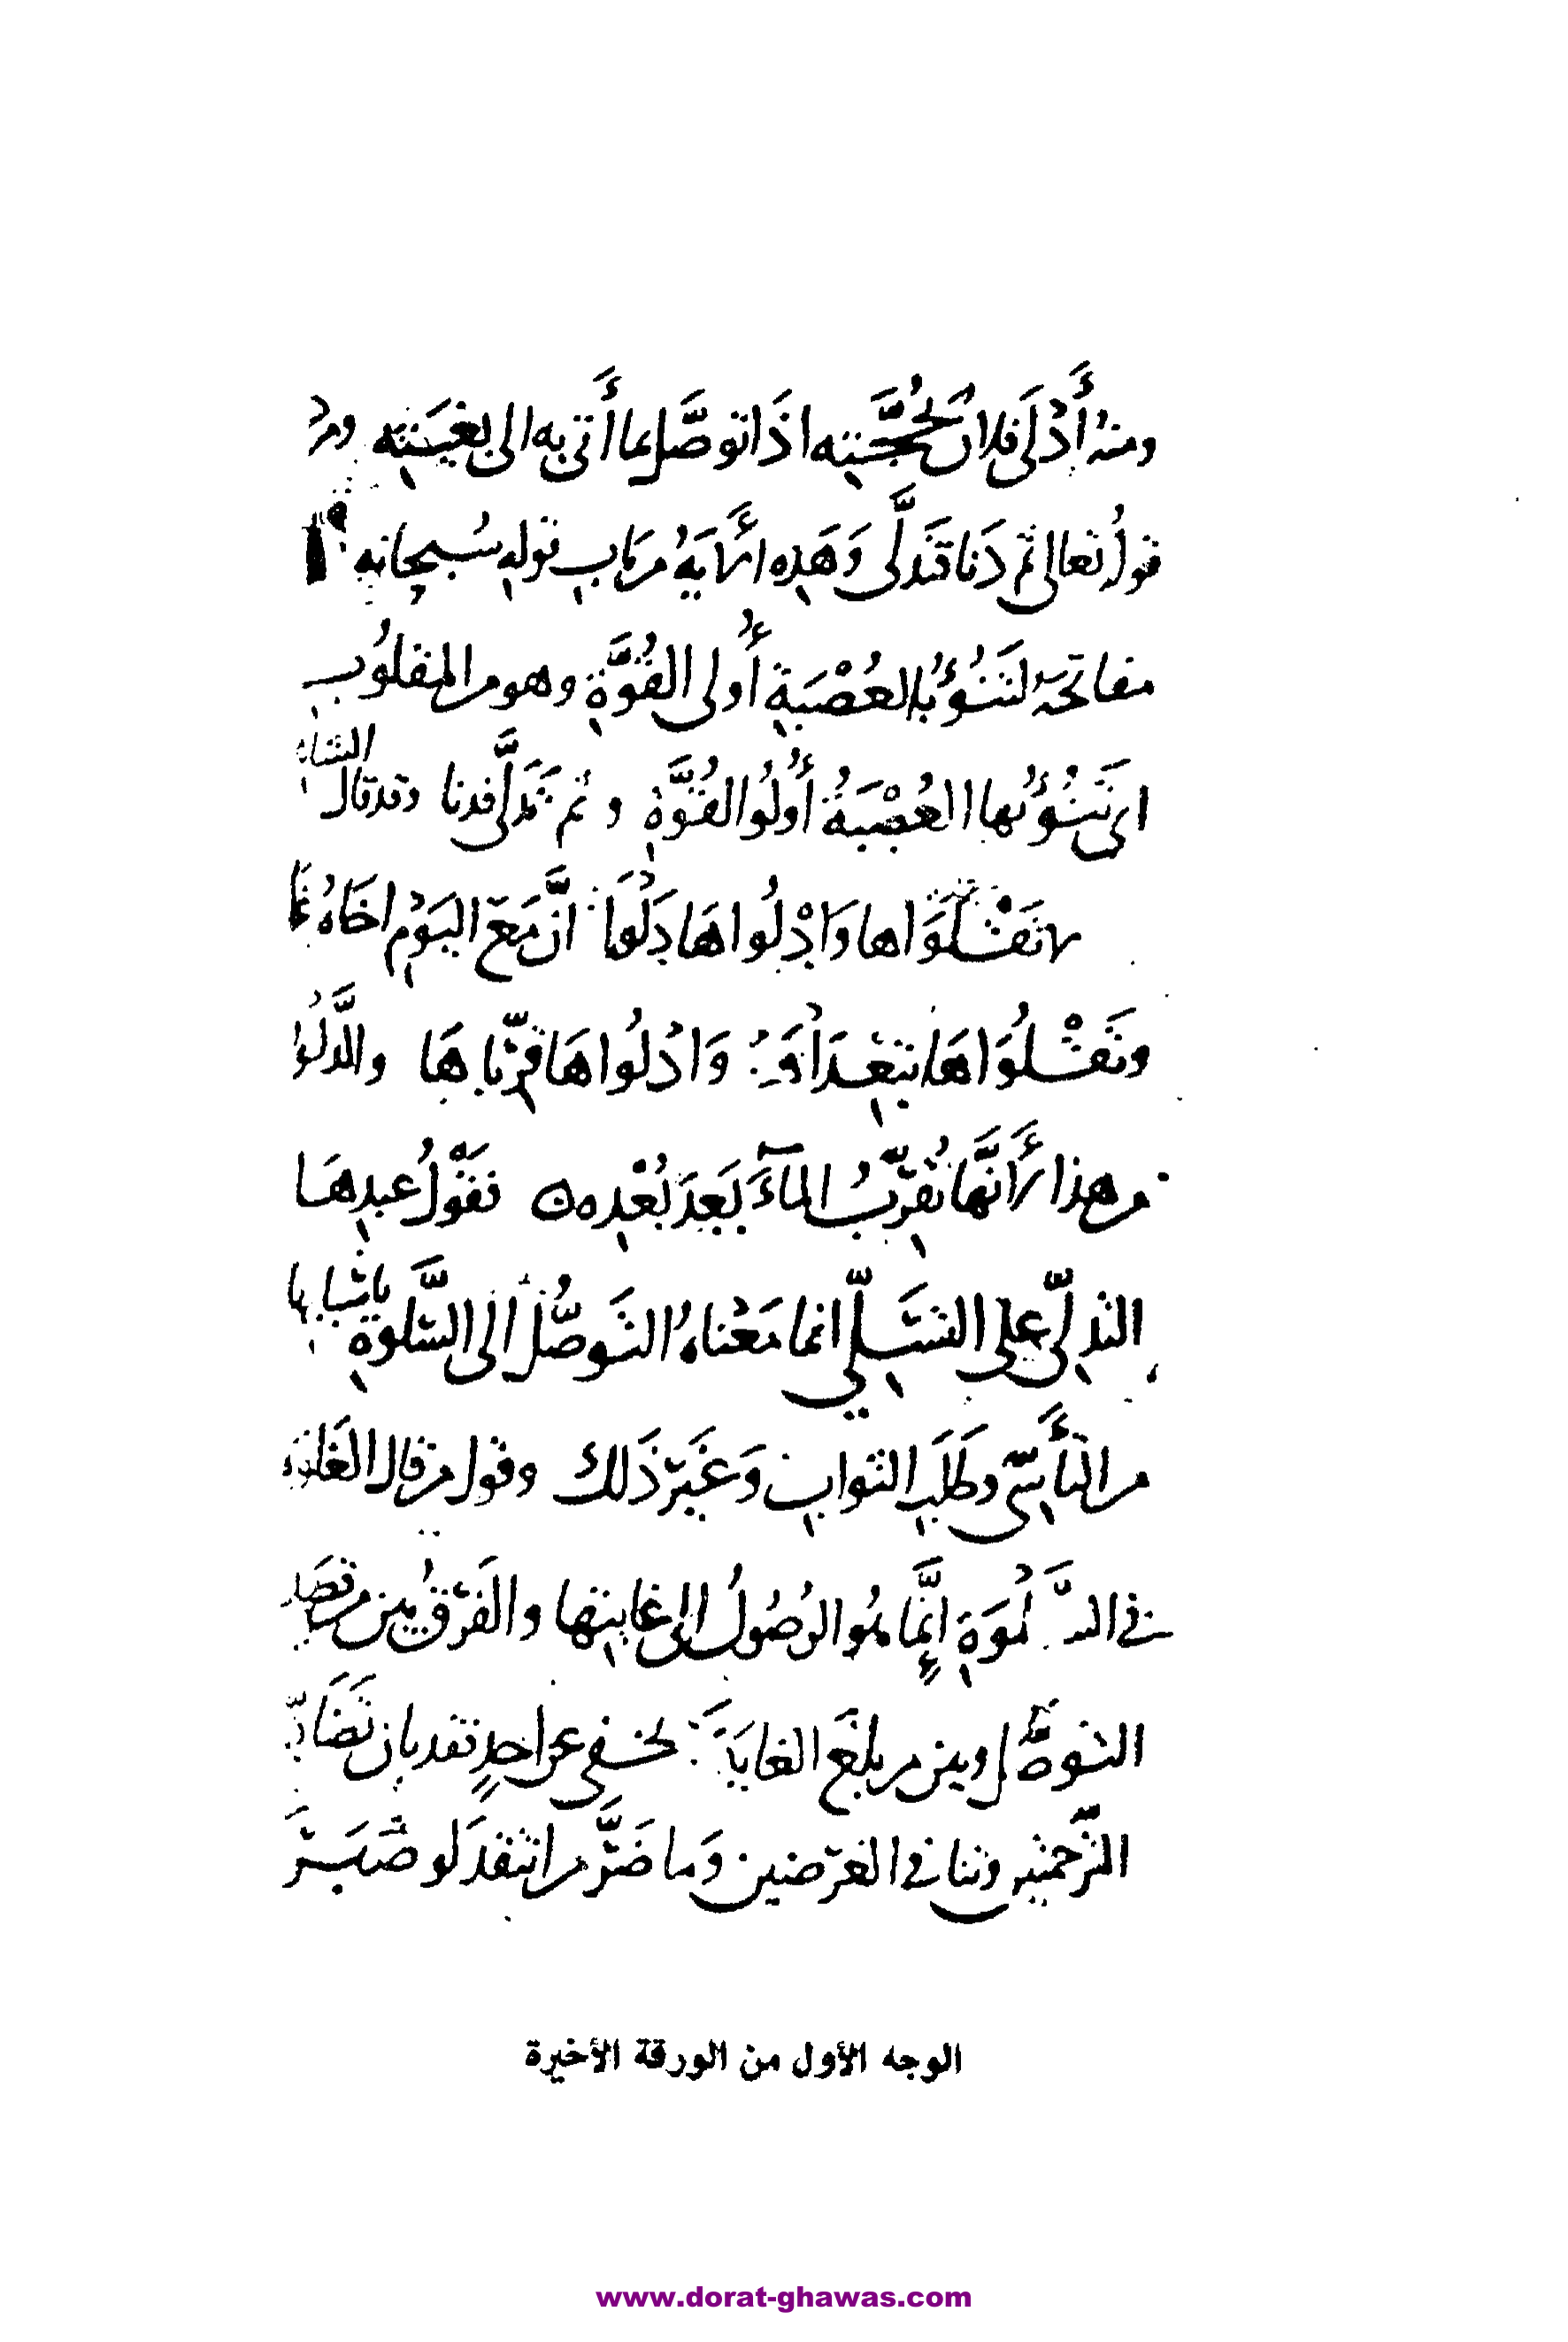 ومنه أَدْلَى فلانٌ بحُجَّتِه اذَا توصَّل بما أَتى به الى بغيَتِه ومنه
قولُه تعالى ثم دَنا فتَدلَّى وَهَذِه الأَيَةُ من بَابِ قوله سُبحانه
مفاتحَه لتَنُوُءُ بالعُصْبَةِ أُولى القُوَّةِ وهو من المقلُوبِ
اى تَنُوُءُ بها العُصْبَةُ أُولُوا القُوَّةِ و ثم تَدَلَّى فدنا وقد قال الشاعر
لا تَقْتُلَوَاها وَادْلُواهَا دَلْوَا انَّ مَعَ اليَوْمِ اخَاهُ غَدْوَا
وتَقْتُلُوَاهَا تبعِدَا وَادْلُواهَا قرِّبَاهَا والدَّلْوُ
من هذا لأَنَّها تُقرِّبُ المآءَ بَعدَ بُعْدِه فقَوْلُ عبدِهَا
التدلِّى على التسَلِّي انما مَعْناهُ التَوصُّل الى السَّلوةِ باسْبابها
من التأَسِّى وطَلَبِ الثوابِ وَغَيْرِ ذَلك وقول من قال الغَايَة
فى السَّلْوَةِ إِنَّما هُو الوُصُولُ الى غايتِها والفَرْقُ بين من قصَد
التوصُّل وبين من بلغَ الغايَةَ لا يخفى عن احدٍ فقد بان تَضَادّ
الترجمتين وتنافى الغرَضين وَما ضَرَّ من انتقدَ لو صَبَرَ
الوجه الأول من الورقة الأخيرة
www.dorat-ghawas.com